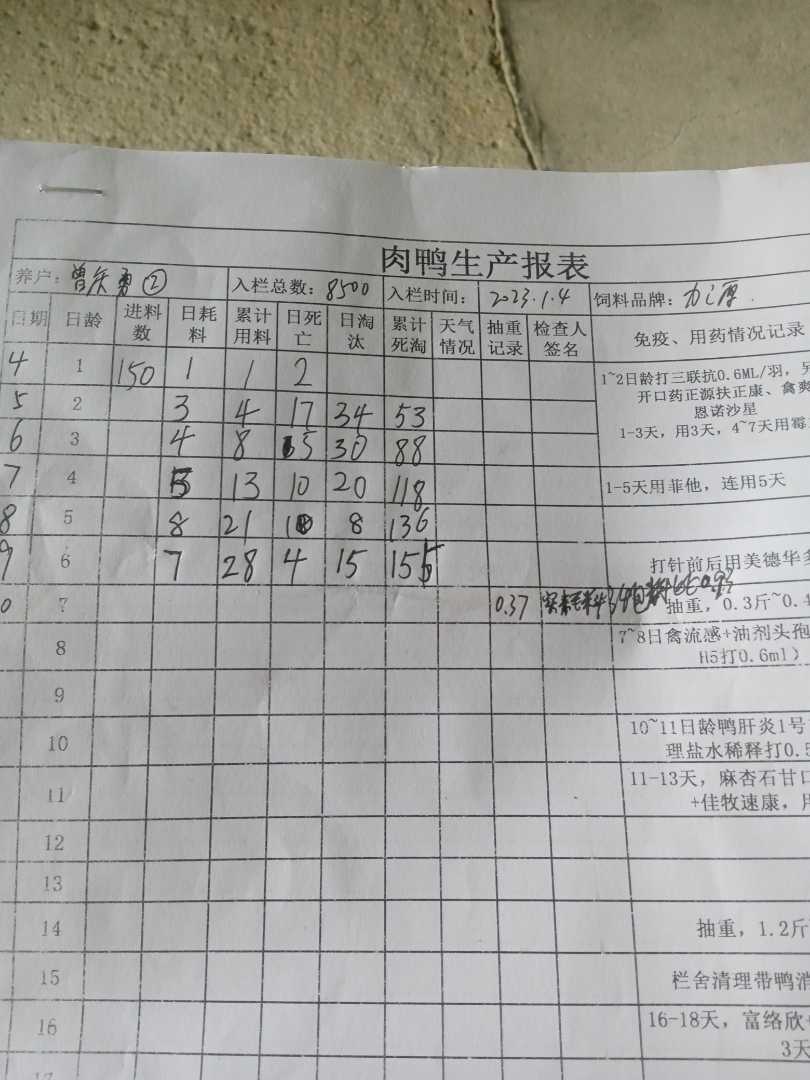 肉鸭生产报表
养户：曾庆勇② 入栏总数：8500 入栏时间：2023.1.4 饲料品牌：力之厚
日期 日龄 进料数 日耗料 累计用料 日死亡 日淘汰 累计死淘 天气情况 抽重记录 检查人签名 免疫、用药情况记录
4 1 150 1 1 2 1~2日龄打三联抗0.6ML/羽，
开口药正源扶正康、禽爽
恩诺沙星
5 2 3 4 17 34 53
6 3 4 8 5 30 88 1-3天，用3天，4~7天用霉
7 4 5 13 10 20 118 1-5天用菲他，连用5天
8 5 8 21 10 8 136
9 6 7 28 4 15 155 打针前后用美德华多
0 7 0.37 实耗料 抽重，0.3斤~0.4
8 7~8日禽流感+油剂头孢
H5打0.6ml）
9
10 10~11日龄鸭肝炎1号
理盐水稀释打0.5
11 11-13天，麻杏石甘口
+佳牧速康，用
12
13
14 抽重，1.2斤
15 栏舍清理带鸭消
16 16-18天，富络欣+
3天
17